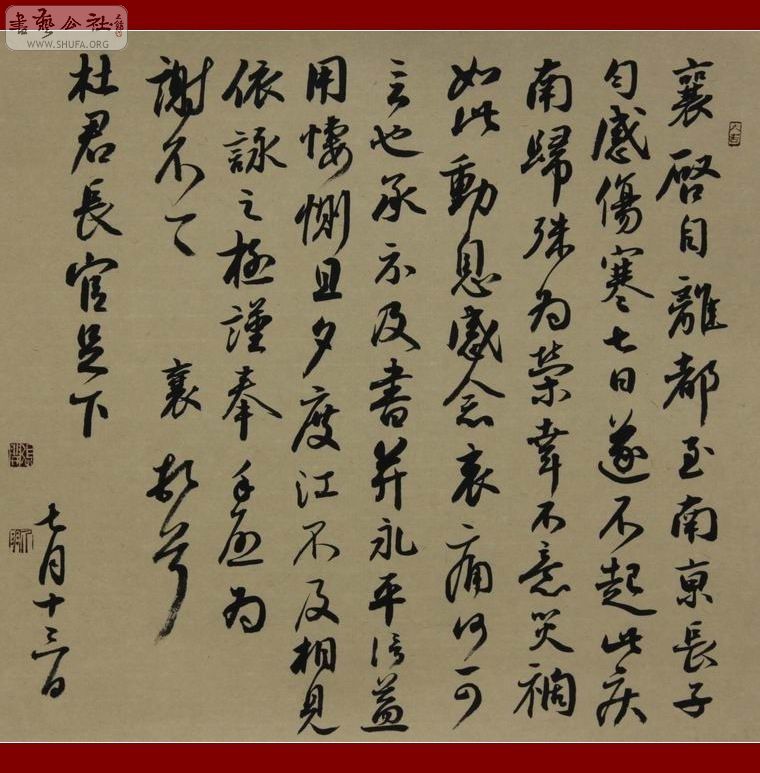 書藝公社
WWW.SHUFA.ORG
襄啓自離都至南京長子
勻感傷寒七日遂不起此疾
南歸殊為榮幸不意災禍
如此動息感念哀痛何可
言也承示及書并永平信益
用悽惻旦夕度江不及相見
依詠之極謹奉手啓為
謝不一一 襄頓首
杜君長官足下
七月十三日